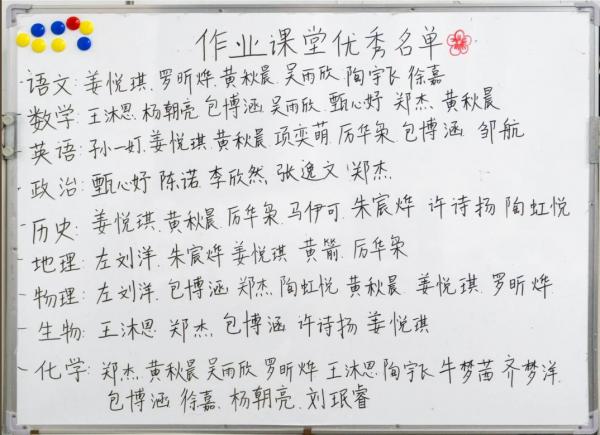 作业课堂优秀名单
语文: 姜悦琪. 罗昕烨. 黄秋晨. 吴雨欣. 陶宇飞. 徐嘉
数学: 王沐思. 杨朝亮. 包博涵. 吴雨欣. 甄心妤 郑杰. 黄秋晨
英语: 孙一虰. 姜悦琪. 黄秋晨. 项奕萌. 厉华枭. 包博涵. 邹航
政治: 甄心妤 陈诺. 李欣然. 张逸文 郑杰
历史: 姜悦琪. 黄秋晨. 厉华枭. 马伊可. 朱宸烨 许诗扬 陶虹悦
地理: 左刘洋. 朱宸烨 姜悦琪 黄箭. 厉华枭
物理: 左刘洋. 包博涵 郑杰. 陶虹悦 黄秋晨 姜悦琪. 罗昕烨
生物: 王沐思 郑杰. 包博涵 许诗扬 姜悦琪
化学: 郑杰. 黄秋晨 吴雨欣 罗昕烨 王沐思. 陶宇飞 牛梦茜 齐梦洋.
包博涵 徐嘉. 杨朝亮. 刘珉睿